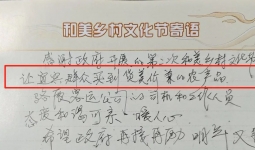 和美乡村文化节寄语
感谢政府开展的第二次和美乡村文化节
让宜兴群众买到货美价廉的农产品
客运公司的司机和工作人员
态度和谒可亲、暖人心
希望政府再接再厉 明年又